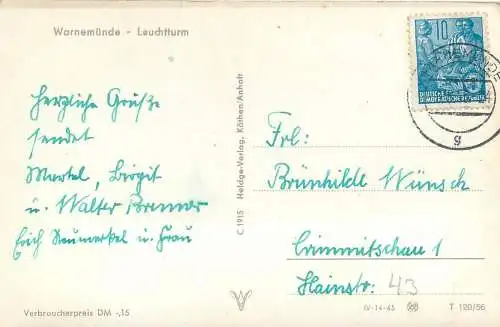 Warnemünde - Leuchtturm
Herzliche Grüße
sendet
Martel, Birgit
u. Walter Bremer
Erich Neumerkel u. Frau
Verbraucherpreis DM -,15
C 1915 Heldge-Verlag, Köthen/Anhalt
10
DEUTSCHE
DEMOKRATISCHE REPUBLIK
g
Frl:
Brünhilde Wünsch
Crimmitschau 1
Hainstr: 43
IV-14-45
T 120/56